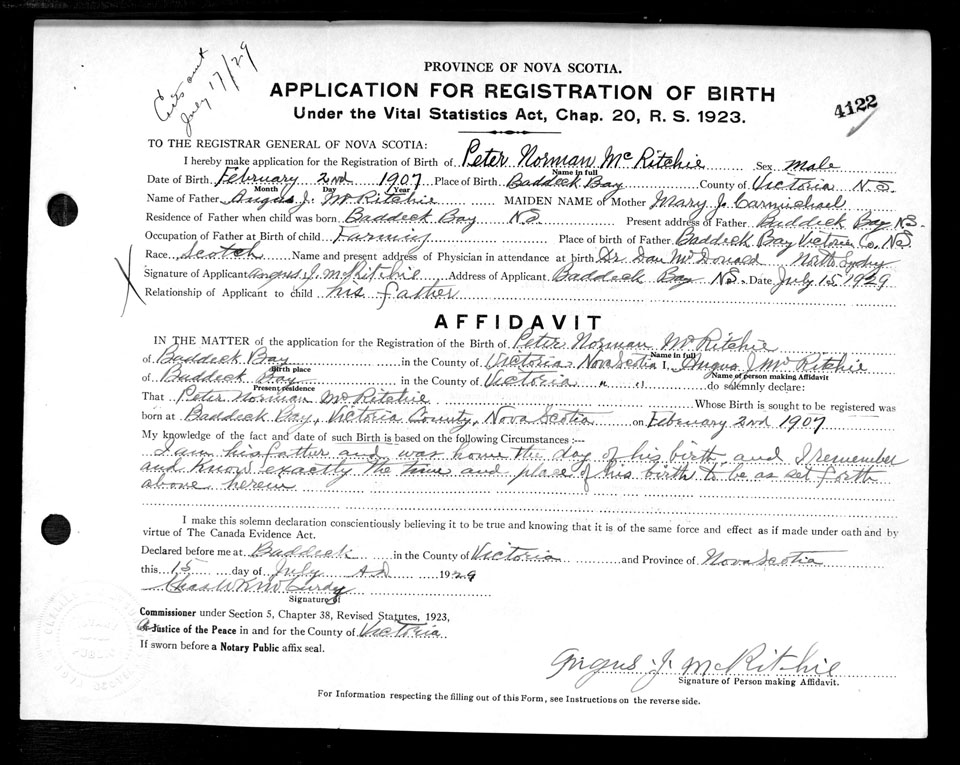 July 17/29
PROVINCE OF NOVA SCOTIA.
APPLICATION FOR REGISTRATION OF BIRTH
Under the Vital Statistics Act, Chap. 20, R. S. 1923.
4122
TO THE REGISTRAR GENERAL OF NOVA SCOTIA:
I hereby make application for the Registration of Birth of Peter Norman McRitchie Sex male
Name in full
Date of Birth February 2nd 1907 Place of Birth Baddeck Bay County of Victoria N.S.
Month Day Year
Name of Father Angus J. McRitchie MAIDEN NAME of Mother Mary J. Carmichael
Residence of Father when child was born Baddeck Bay NS Present address of Father Baddeck Bay NS.
Occupation of Father at Birth of child Farming Place of birth of Father Baddeck Bay Victoria Co. NS
Race Scotch Name and present address of Physician in attendance at birth Dr Dan McDonald North Sydney
Signature of Applicant Angus J. McRitchie Address of Applicant Baddeck Bay NS. Date July 15 1929
Relationship of Applicant to child his father
AFFIDAVIT
IN THE MATTER of the application for the Registration of the Birth of Peter Norman McRitchie
Name in full
of Baddeck Bay in the County of Victoria Nova Scotia I, Angus J McRitchie
Birth place Name of person making Affidavit
of Baddeck Bay in the County of Victoria " " do solemnly declare:
Present residence
That Peter Norman McRitchie Whose Birth is sought to be registered was
born at Baddeck Bay, Victoria County, Nova Scotia on February 2nd 1907
My knowledge of the fact and date of such Birth is based on the following Circumstances :—
I am his father and was home the day of his birth and I remember
and know exactly the time and place of his birth to be as set forth
above herein
I make this solemn declaration conscientiously believing it to be true and knowing that it is of the same force and effect as if made under oath and by
virtue of The Canada Evidence Act.
Declared before me at Baddeck in the County of Victoria and Province of Nova Scotia
this 15 day of July AD 1929
Signature of
Commissioner under Section 5, Chapter 38, Revised Statutes, 1923,
Justice of the Peace in and for the County of Victoria
If sworn before a Notary Public affix seal.
Angus J. McRitchie
Signature of Person making Affidavit.
For Information respecting the filling out of this Form, see Instructions on the reverse side.